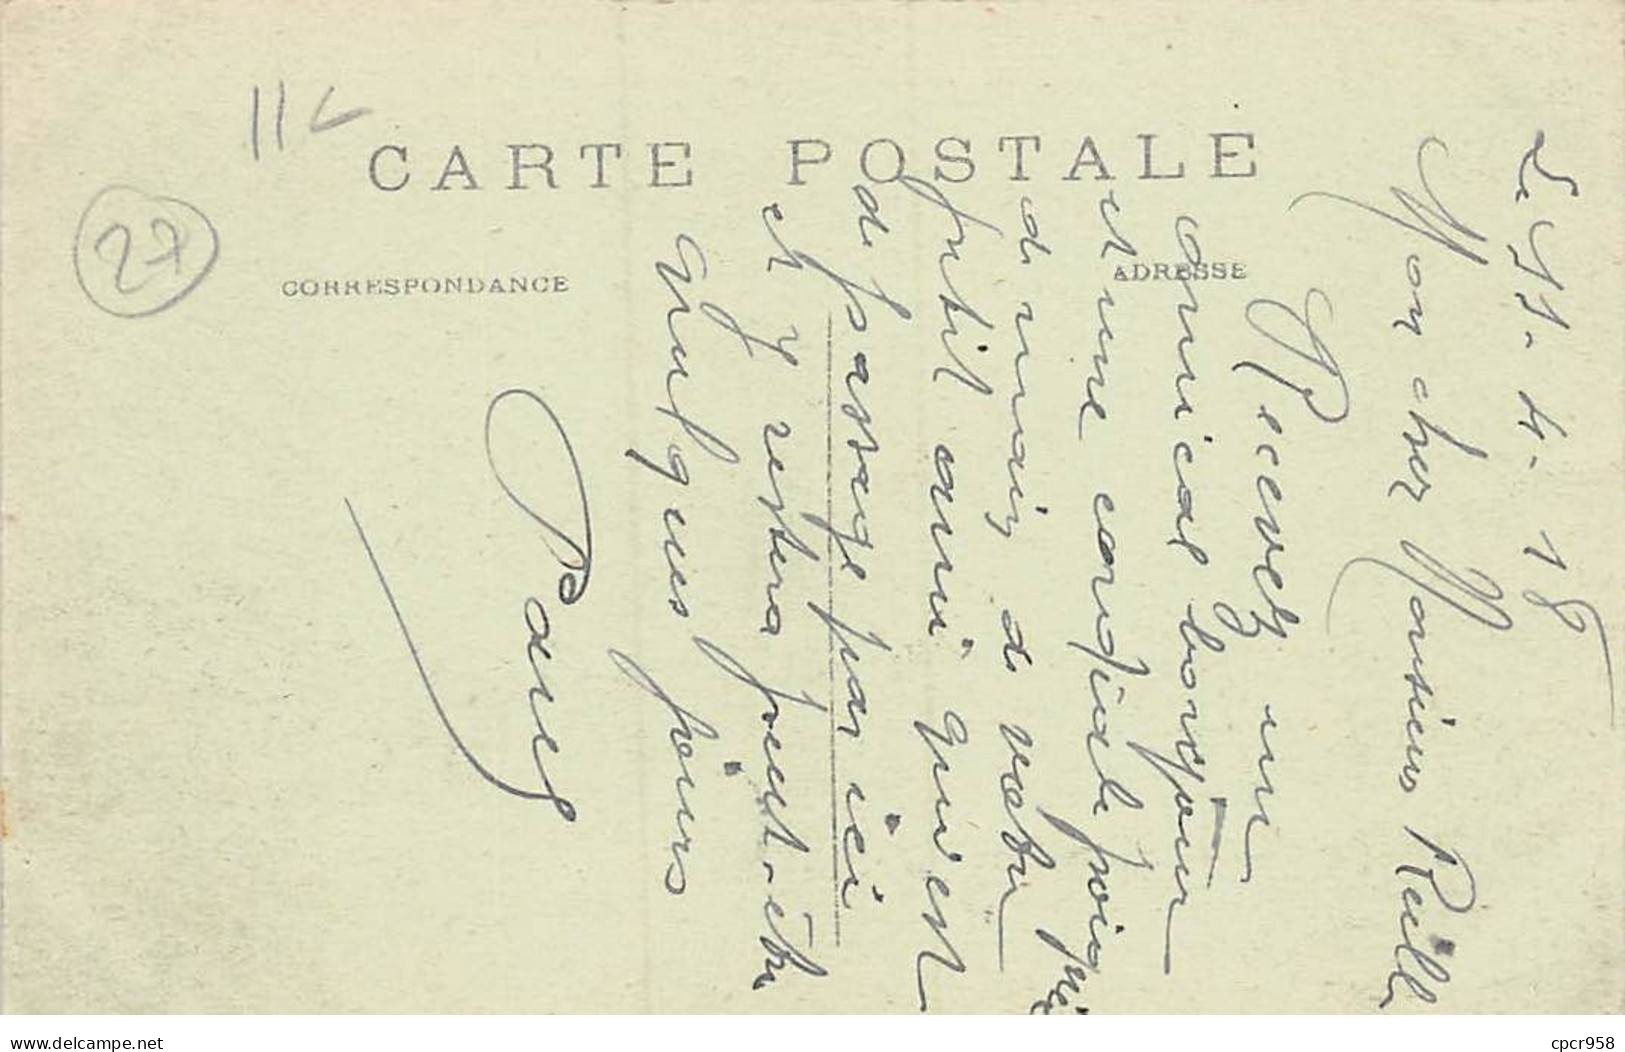 11
CARTE POSTALE
27
CORRESPONDANCE
ADRESSE
Le 11-4-18
Mon cher Monsieur
Recevez un
amical bonjour
et une cordiale poignée
de main de votre
petit ami qui est
de passage par ici
et y restera peut-être
quelques jours
delcampe.net
cpcr958